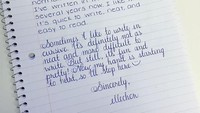 I've written in
several years now. I like
it's quick to write, neat, and
easy to read.
Sometimes I like to write in
cursive. It's definitely not as
neat and more difficult to
write. But still, it's fun and
pretty! Now my hand is starting
to hurt, so I'll stop here :)
Sincerely,